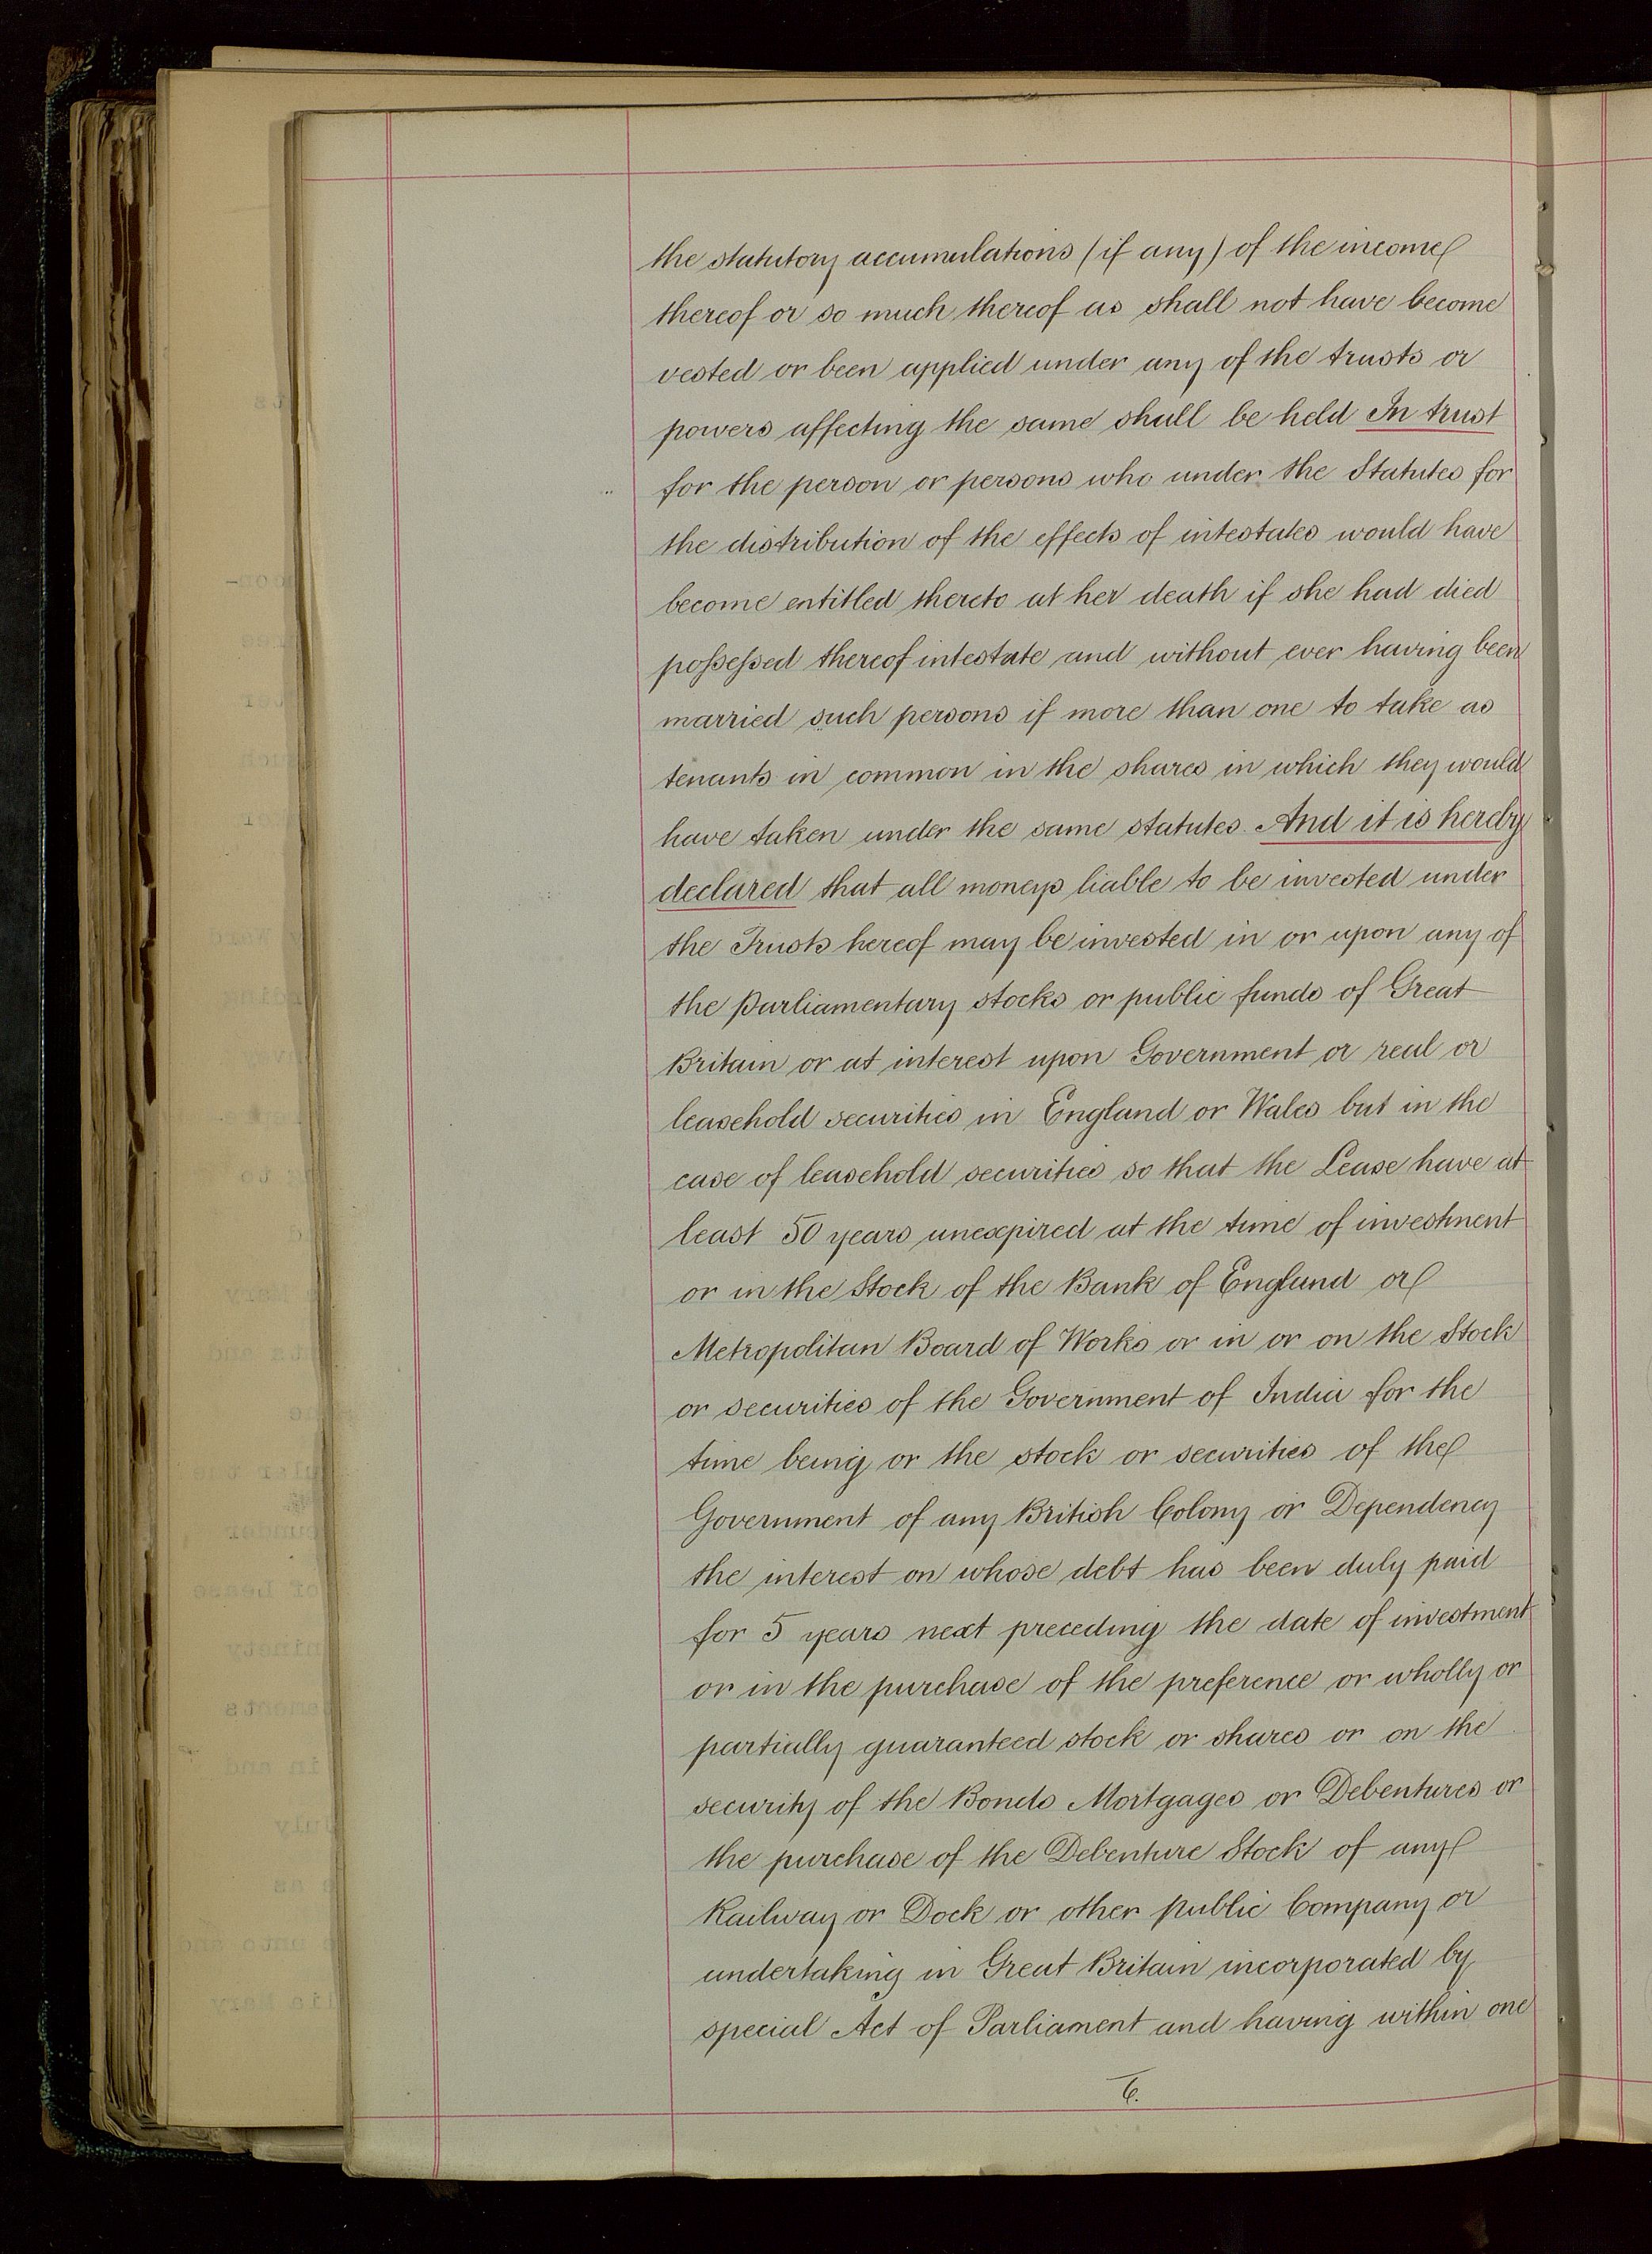 the statutory accumulations (if any) of the income
thereof or so much thereof as shall not have become
vested or been applied under any of the trusts or
powers affecting the same shall be held In trust
for the person or persons who under the Statutes for
the distribution of the effects of intestates would have
become entitled thereto at her death if she had died
possessed thereof intestate and without ever having been
married such persons if more than one to take as
tenants in common in the shares in which they would
have taken under the same statutes And it is hereby
declared that all moneys liable to be invested under
the Trusts hereof may be invested in or upon any of
the parliamentary stocks or public funds of Great
Britain or at interest upon Government or real or
leasehold securities in England or Wales but in the
case of leasehold securities so that the Lease have at
least 50 years unexpired at the time of investment
or in the Stock of the Bank of England or
Metropolitan Board of Works or in or on the Stock
or securities of the Government of India for the
time being or the stock or securities of the
Government of any British Colony or Dependency
the interest on whose debt has been duly paid
for 5 years next preceding the date of investment
or in the purchase of the preference or wholly or
partially guaranteed stock or shares or on the
security of the Bonds Mortgages or Debentures or
the purchase of the Debenture Stock of any
Railway or Dock or other public Company or
undertaking in Great Britain incorporated by
special Act of Parliament and having within one
6.